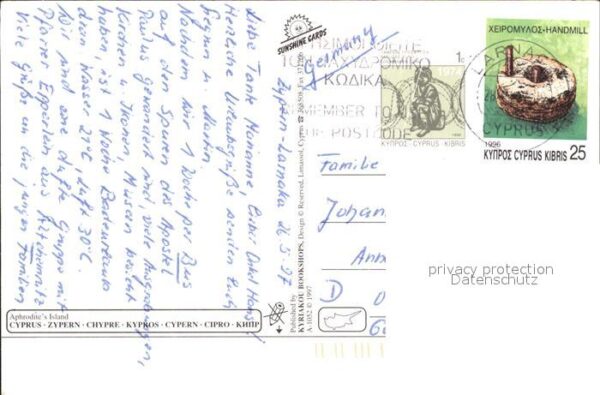 Zypern-Larnaka 26.5.97
Liebe Tante Marianne, Lieber Onkel Hans!
Herzliche Urlaubsgrüße senden Euch
Regina u. Martin.
Nachdem wir 1 Woche per Bus
auf den Spuren des Apostel
Paulus gewandert sind, viele Ausgrabungen,
Kirchen, Museen besucht
haben ist 1 Woche Badeurlaub
dran Wasser 21°C, Luft 30°C.
Wir sind eine dufte Gruppe mit
Pfarrer aus
Viele Grüße an die jungen Familien
Germany
Familie
Johan
Ann
D 0
SUNSHINE CARDS
Published by
KYRIAKOU BOOKSHOPS, Design © Reserved, Limassol, Cyprus
A-1052 © 1997
Aphrodite's Island
CYPRUS · ZYPERN · CHYPRE · KYPROS · CYPERN · CIPRO · КИПР
ΧΡΗΣΙΜΟΠΟΙΕΙΤΕ
ΤΟΝ ΤΑΧΥΔΡΟΜΙΚΟ
ΚΩΔΙΚΑ
REMEMBER TO
POSTCODE
1c
1974
ΚΥΠΡΟΣ - CYPRUS - KIBRIS
LARNA
CYPRUS
ΧΕΙΡΟΜΥΛΟΣ-HANDMILL
1996
ΚΥΠΡΟΣ CYPRUS KIBRIS 25
privacy protection
Datenschutz